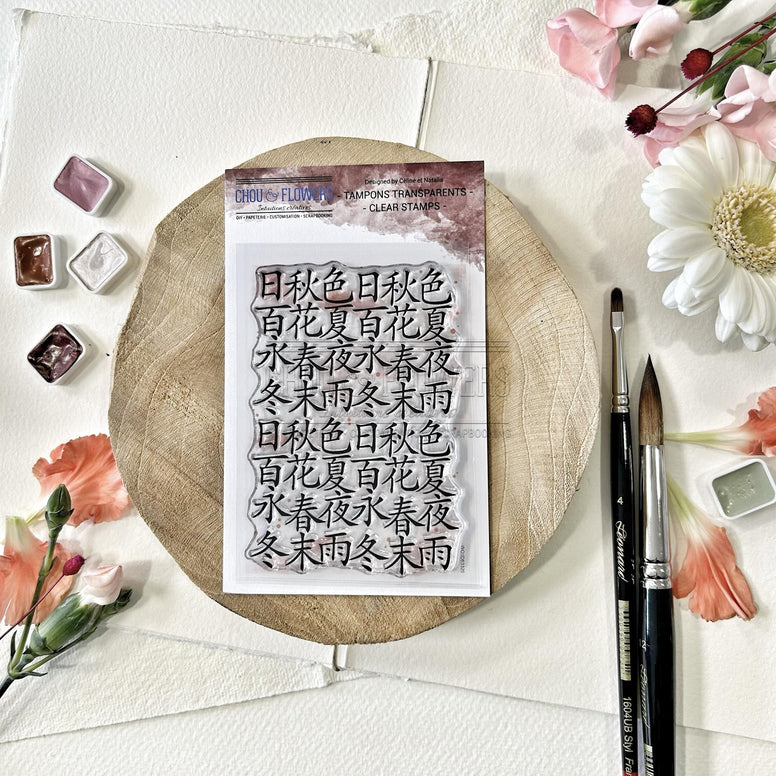 CHOU & FLOWERS
Intuitions créatives
DIY • PAPETERIE • CUSTOMISATION • SCRAPBOOKING
Designed by Céline et Natalia
- TAMPONS TRANSPARENTS -
- CLEAR STAMPS -
日秋色日秋色
百花夏百花夏
永春夜永春夜
冬末雨冬末雨
日秋色日秋色
百花夏百花夏
永春夜永春夜
冬末雨冬末雨
4
Leonard
Leonard
1604UB Styl